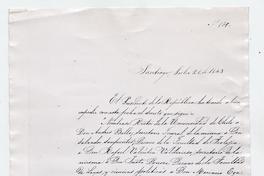 Santiago Julio 26 de 1843
El Presidente de la Republica ha tenido a bien
expedir con esta fecha el decreto que sigue
"Nombrase Rector de la Universidad de Chile a
Don Andres Bello, secretario Jeneral de la misma a Don
Salvador Sanfuentes, Decano de la Facultad de Teolojia
a Don Rafael Valentin Valdivieso, secretario de la
misma a Don Justo Donoso, Decano de la Facultad
de Leyes y ciencias politicas a Don Mariano Ega